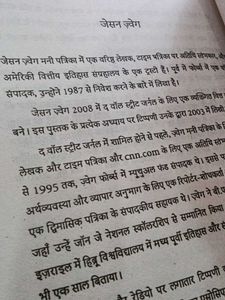 जेसन ज़्वेग
जेसन ज़्वेग मनी पत्रिका में एक वरिष्ठ लेखक, टाइम पत्रिका पर अतिथि स्तंभकार, और
अमेरिकी वित्तीय इतिहास संग्रहालय के एक ट्रस्टी हैं। पूर्व में फोर्ब्स में एक
संपादक, उन्होंने 1987 से निवेश करने के बारे में लिखा है।
जेसन ज़्वेग 2008 में द वॉल स्ट्रीट जर्नल के लिए एक व्यक्तिगत वित्त
बने। इस पुस्तक के प्रत्येक अध्याय पर टिप्पणी उनके द्वारा 2003 में लिखी
द वॉल स्ट्रीट जर्नल में शामिल होने से पहले, ज़्वेग मनी पत्रिका के
लेखक और टाइम पत्रिका और cnn.com के लिए एक अतिथि स्तंभकार थे।
से 1995 तक, ज़्वेग फोर्ब्स में म्युचुअल फंड संपादक थे। इससे पहले
अर्थव्यवस्था और व्यापार अनुभाग के लिए एक रिपोर्टर-शोधकर्ता
एक द्विमासिक पत्रिका के संपादकीय सहायक थे। ज़्वेग ने बी.ए.
जहाँ उन्हें जॉन जे नेशनल स्कॉलरशिप से सम्मानित किया
इज़राइल में हिब्रू विश्वविद्यालय में मध्य पूर्वी इतिहास और
भी एक साल बिताया।
और रेडियो पर लगातार टिप्पणी